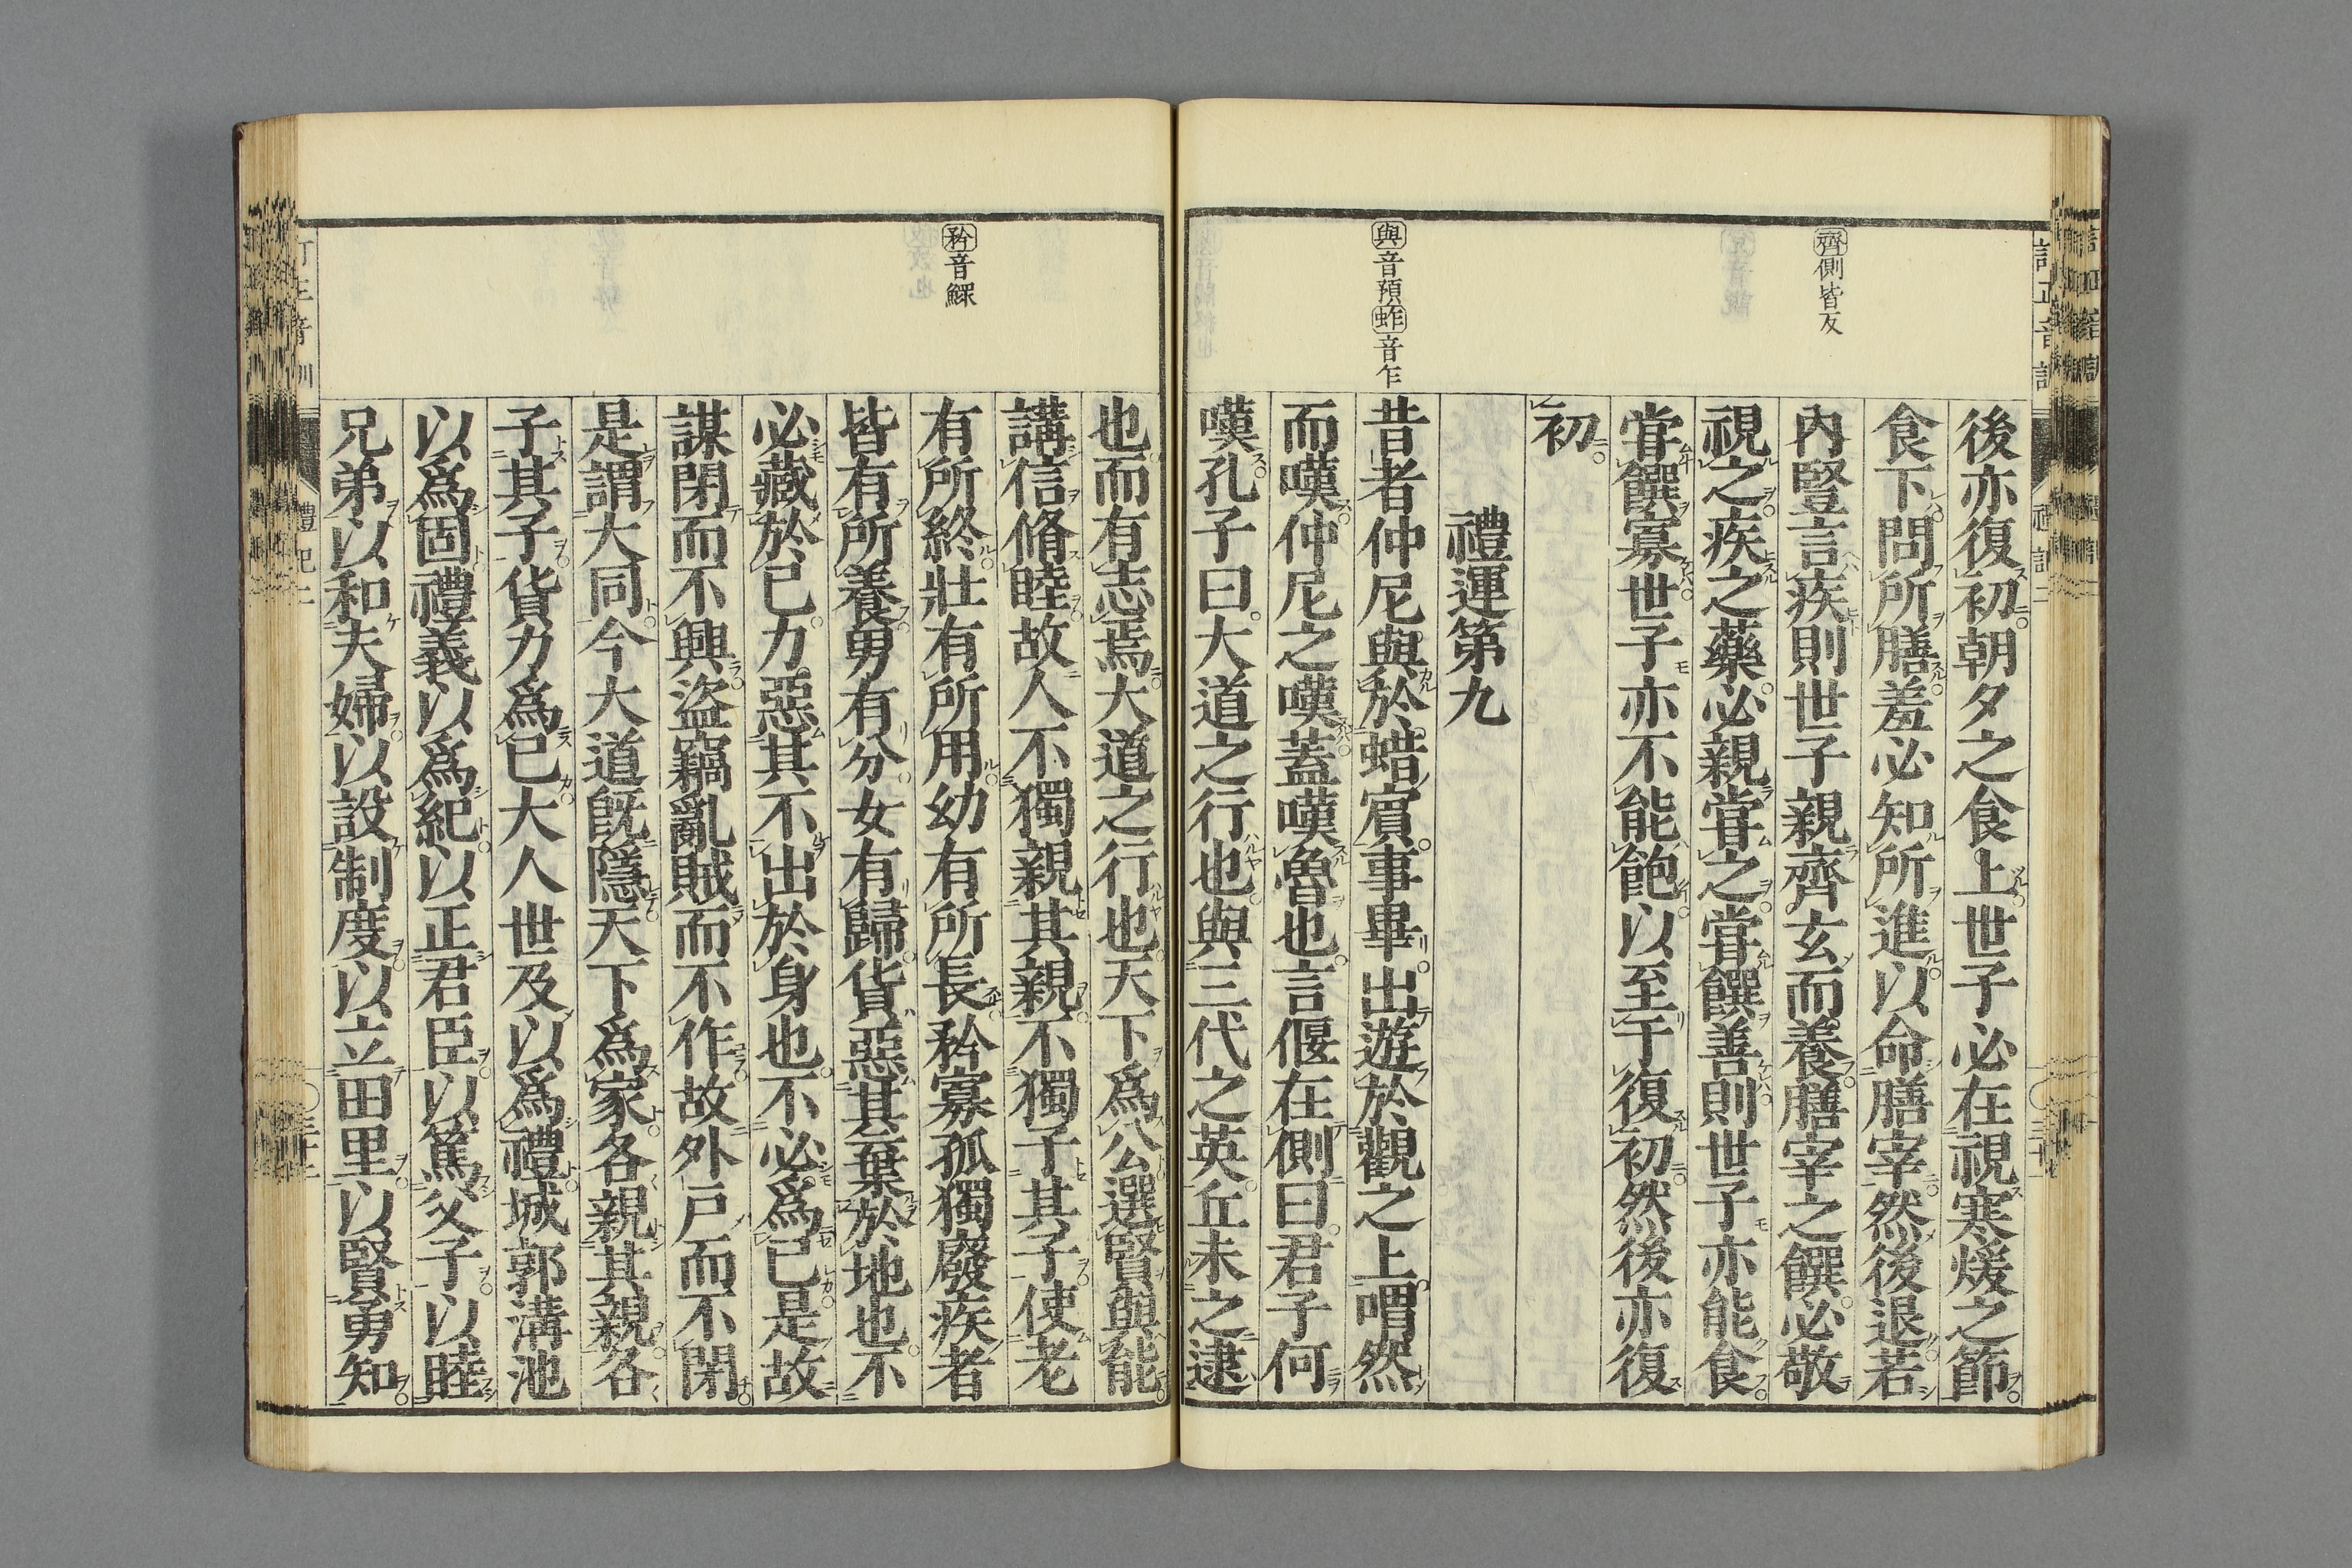 齊側皆反
與音預蜡音乍
後亦復初朝夕之食上世子必在視寒煖之節
食下問所膳羞必知所進以命膳宰然後退若
內豎言疾則世子親齊玄而養膳宰之饌必敬
視之疾之藥必親甞之甞饌善則世子亦能食
甞饌寡世子亦不能飽以至于復初然後亦復
初
禮運第九
昔者仲尼與於蜡賓事畢出遊於觀之上喟然
而嘆仲尼之嘆蓋嘆魯也言偃在側曰君子何
嘆孔子曰大道之行也與三代之英丘未之逮
矜音鰥
也而有志焉大道之行也天下爲公選賢與能
講信脩睦故人不獨親其親不獨子其子使老
有所終壯有所用幼有所長矜寡孤獨廢疾者
皆有所養男有分女有歸貨惡其棄於地也不
必藏於已力惡其不出於身也不必爲已是故
謀閉而不興盜竊亂賊而不作故外戸而不閉
是謂大同今大道旣隱天下爲家各親其親各
子其子貨力爲已大人世及以爲禮城郭溝池
以爲固禮義以爲紀以正君臣以篤父子以睦
兄弟以和夫婦以設制度以立田里以賢勇知
禮記二